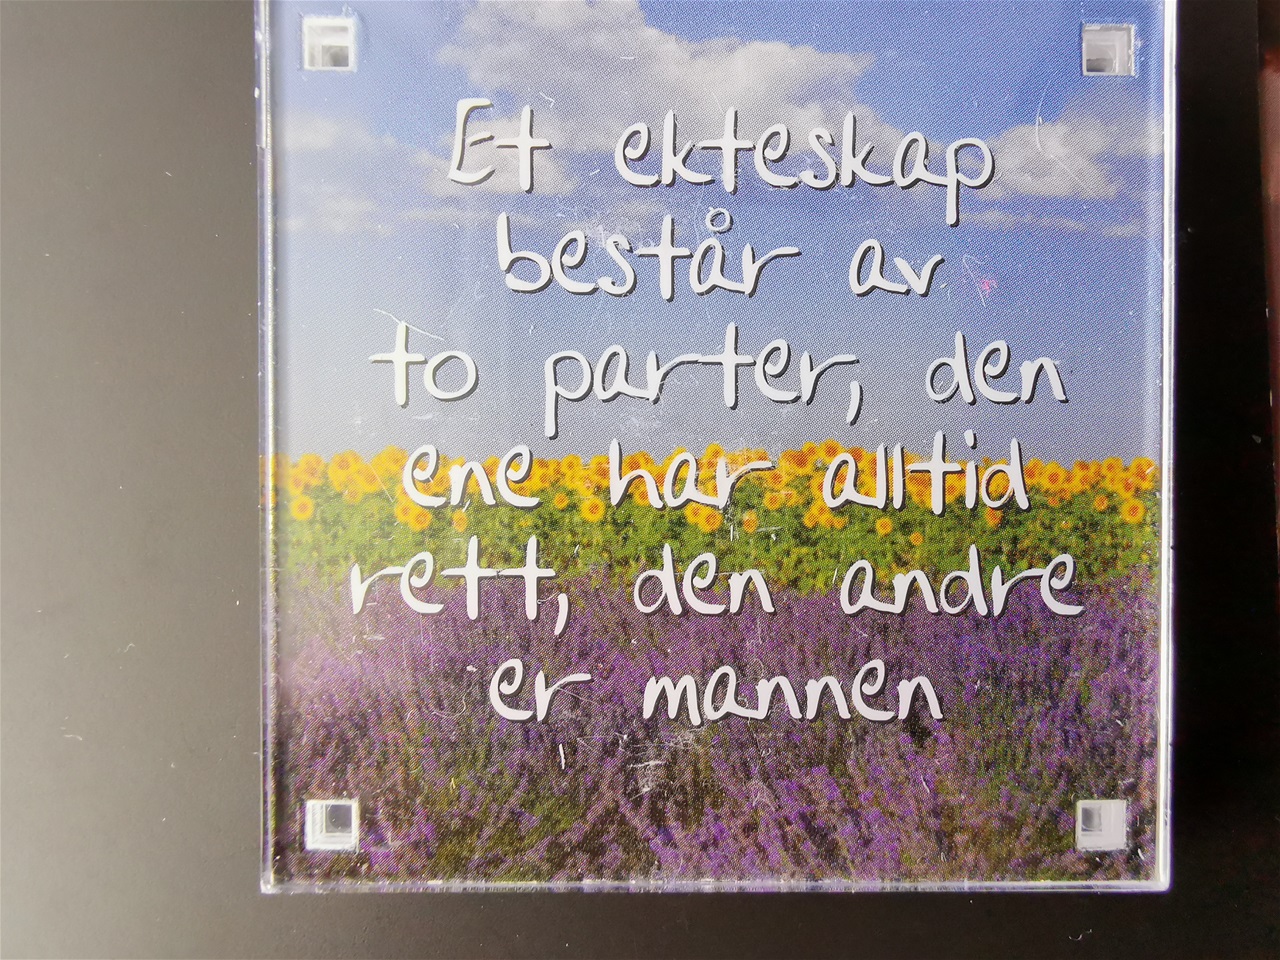 Et ekteskap
består av
to parter, den
ene har alltid
rett, den andre
er mannen